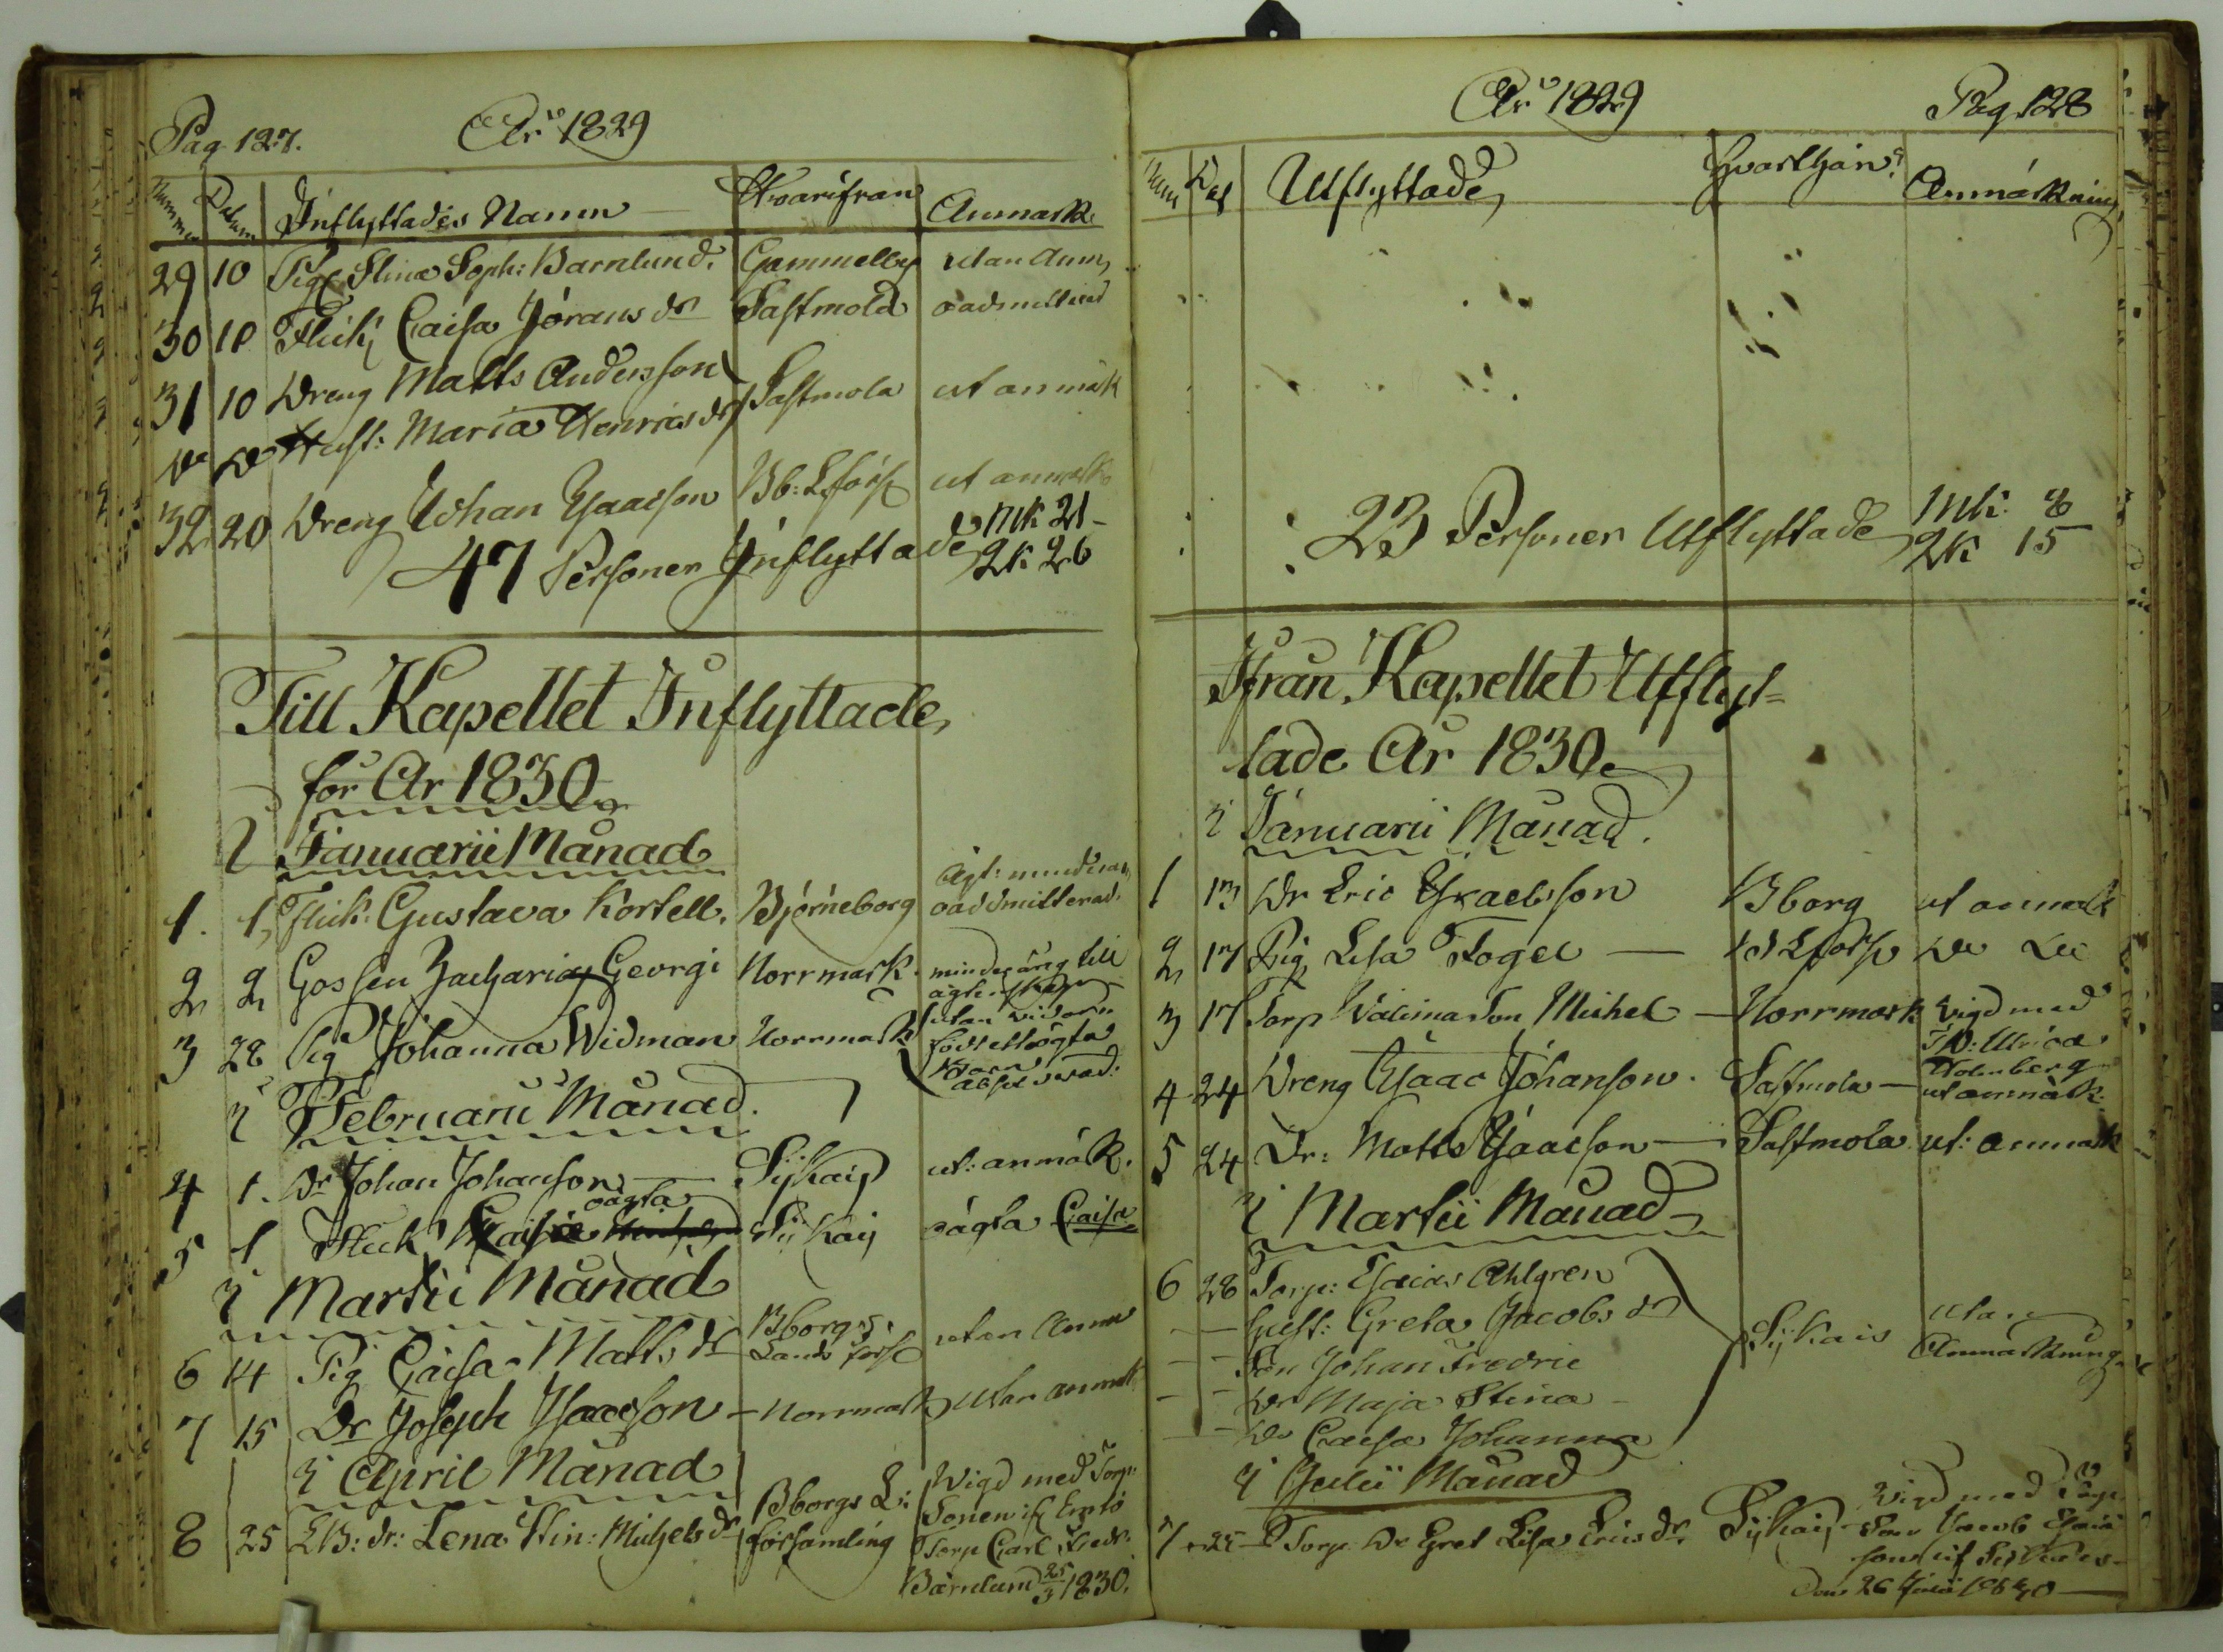 Pag 127.
År 1829
Nummer Datum Inflyttades Namn Hvarifran Anmärk.
29 10 Pig Stina Soph: Barnlund. Gammelby utan Anm,
30 10 Flick Caisa Jörans dr Sastmola oadmitterad
31 10 Dreng Matts Andersson Sastmola ut anmärk
Do Do Hust: Maria Henrics dr
32 20 Dreng Johan Isaacson Bb: Lförs ut anmärk
47 Personer Inflyttade Mk 21
Qk 26
Till Kapellet Inflyttade,
för År 1830
I Januarii Månad
1. 1, Flick: Gustava Kortell. Björneborg oadmitterad.
2 2 Gossen Zacharias Georgi Norrmark. minderårig till
3 28 Pig Johanna Widman Norrmark utan vidare
födt ett oägta
Barn
absolverad.
I Februarii Månad.
4 1. Dr Johan Johanson Sijkais ut: anmärk.
oägta
5 1 Flick Caisa Sijkaij oägta Caisa
I Martii Månad
6 14 Pig Caisa Matts dr Bborgs Lands förs utan Anm
7 15 Dr Joseph Isacson Norrmark utan anmärk
I April Månad
8 25 Dr: Lena Stin: Michels dr Bborgs L: församling Wigd med Torp:
Sonen
Torp Carl Fredr.
Bärnlund 25/3 1830.
År 1829
Pag 128
Num Dat Utflyttade, Hvarthän? Anmärkning
23 Personer Utflyttade Mk: 8
Qk 15
Ifrån Kapellet Utflyt-
tade År 1830
I Januarii Månad.
1 13 Dr Eric Isaacsson Bborg ut anmärk
2 17 Pig Lisa Fogel Lförs Do Do
3 17 Torp Michel Norrmark vigd med
P: Ulrica
Holmberg
4 24 Dreng Isaac Johanson. Sastmola ut anmärk.
5 24 Dr: Matts Isaacson Sastmola ut: anmärk
I Martii Månad
6 28 Torp: Esaias Ahlgren
Hust: Greta Jacobs dr
Son Johan Fredric Sijkais utan
Anmärkning
Dr Maja Stina
Do Caisa Johanna
I Julii Månad
7 25 Torp Dr Gret Lisa Erics dr Sijkais vigd med Torp
Son Jacob
son uti
den 26 1830